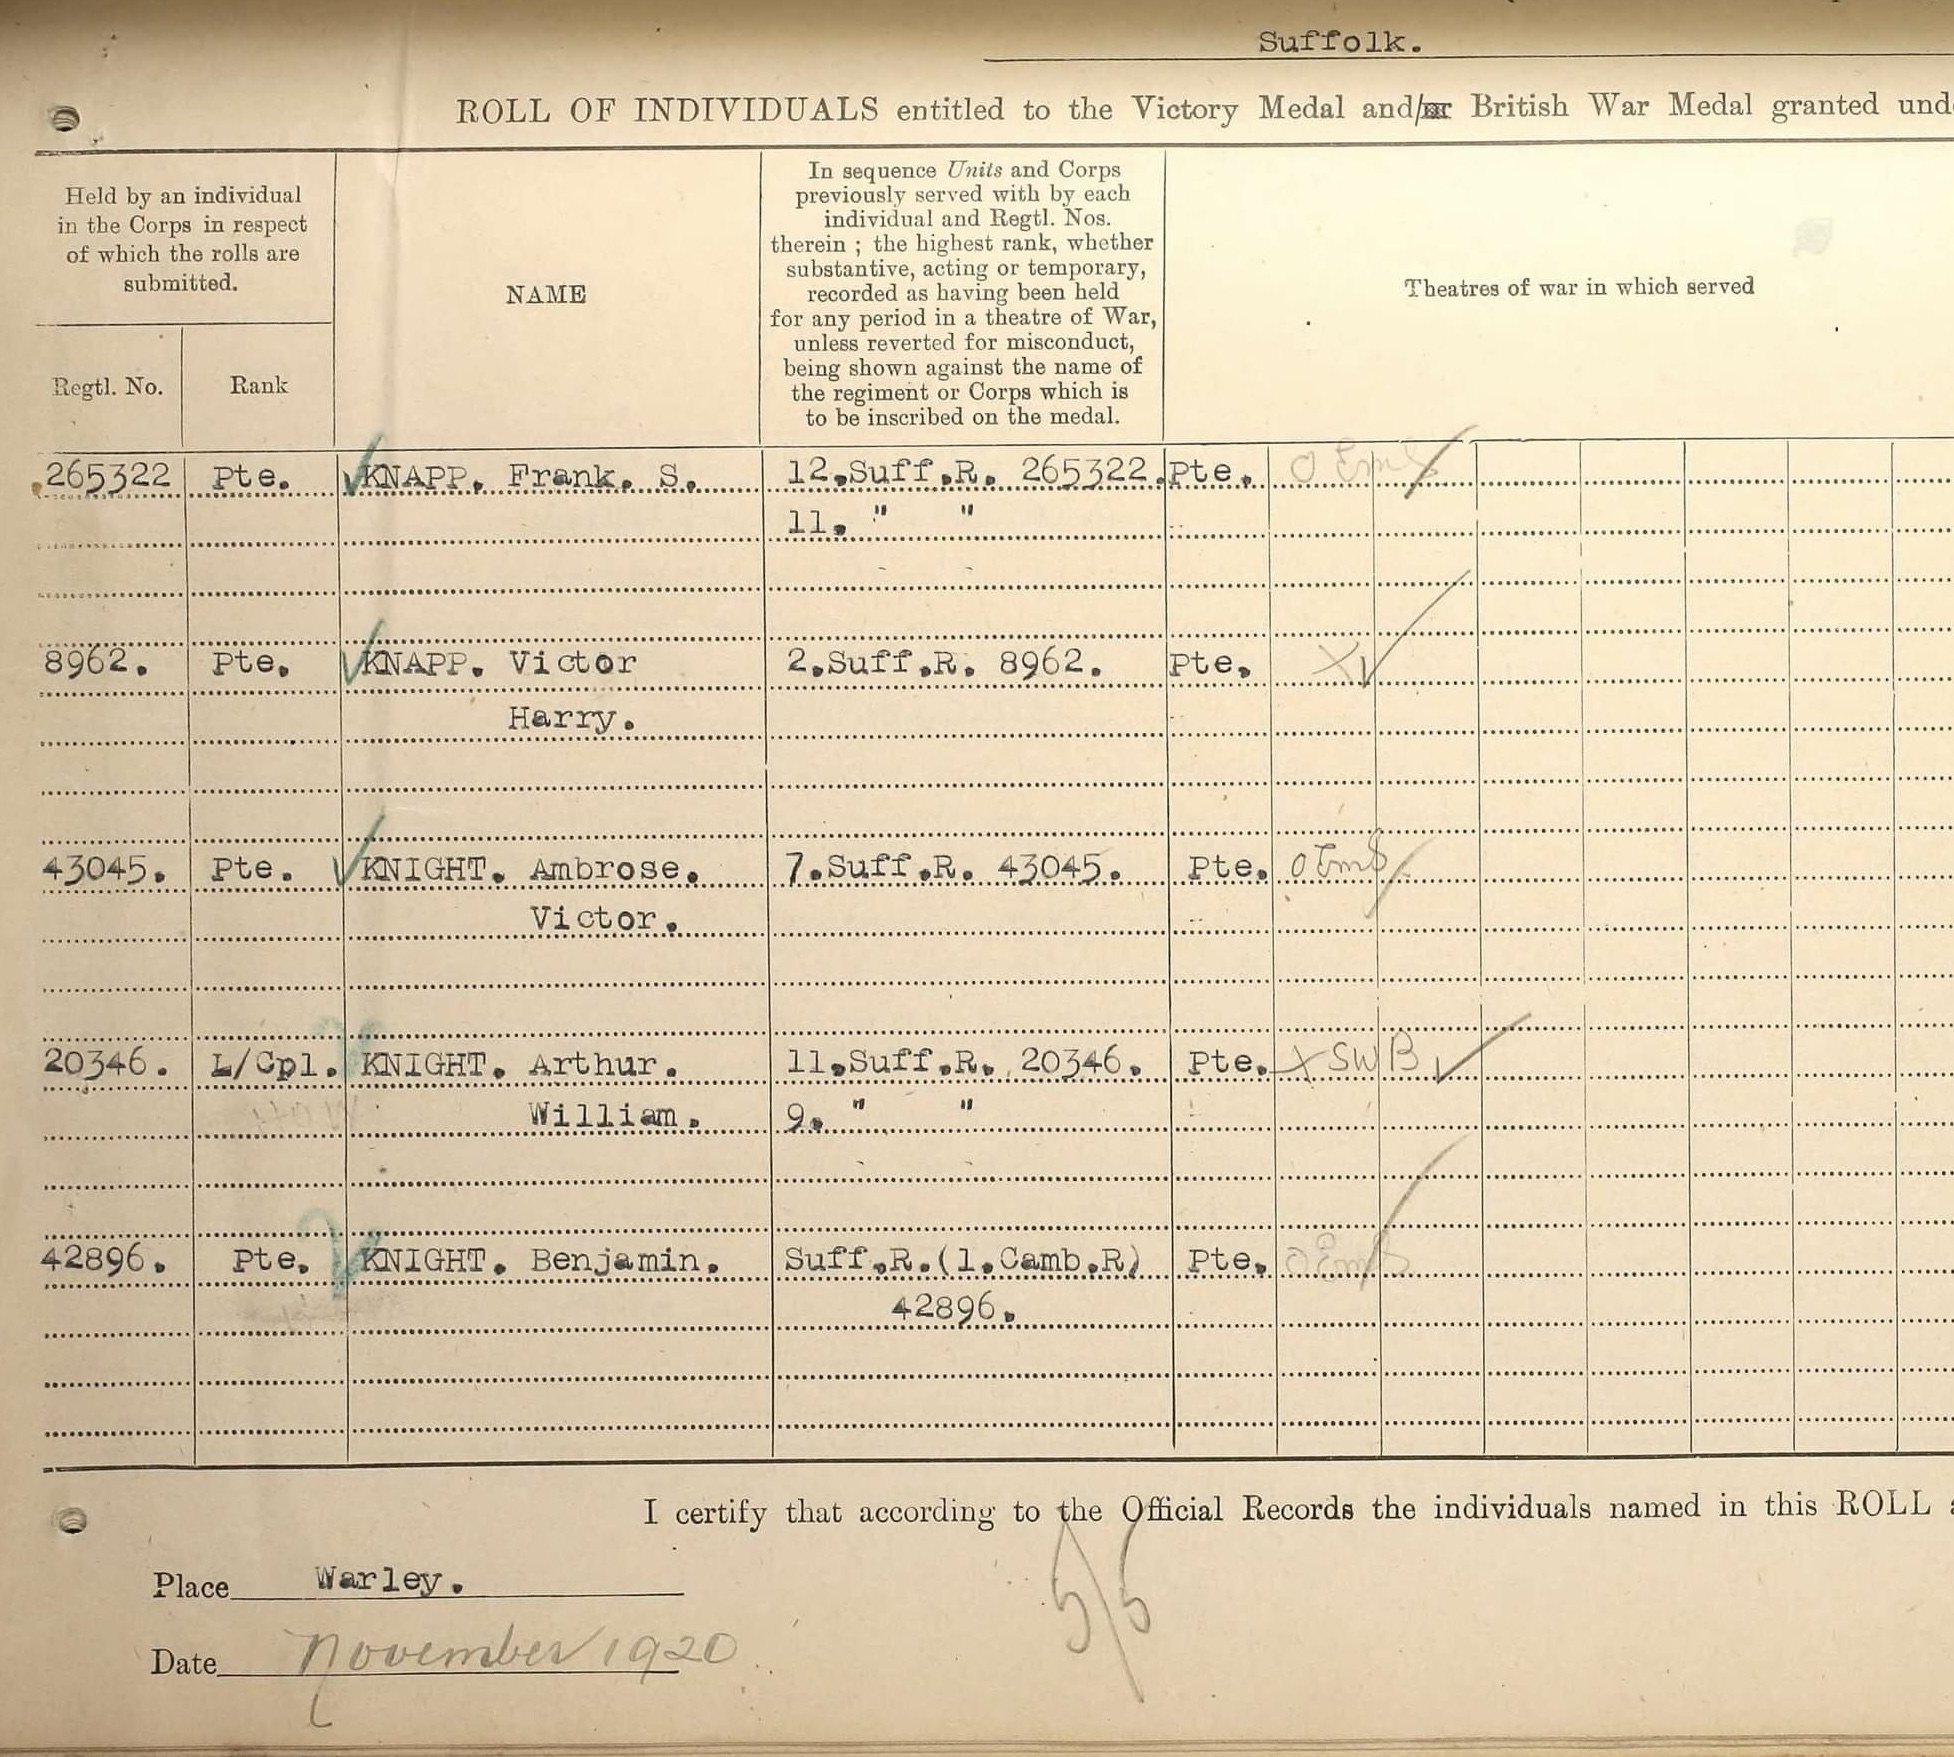 Suffolk.
ROLL OF INDIVIDUALS entitled to the Victory Medal and/or British War Medal granted und
Held by an individual
in the Corps in respect
of which the rolls are
submitted.
Regtl. No.
Rank
NAME
In sequence Units and Corps
previously served with by each
individual and Regtl. Nos.
therein ; the highest rank, whether
substantive, acting or temporary,
recorded as having been held
for any period in a theatre of War,
unless reverted for misconduct,
being shown against the name of
the regiment or Corps which is
to be inscribed on the medal.
Theatres of war in which served
265322 Pte. KNAPP. Frank. S. 12.Suff.R. 265322. Pte. O Ems
11. " "
8962. Pte. KNAPP. Victor 2.Suff.R. 8962. Pte. X
Harry.
43045. Pte. KNIGHT. Ambrose. 7.Suff.R. 43045. Pte. O Ems
Victor.
20346. L/Cpl. KNIGHT. Arthur. 11.Suff.R. 20346. Pte. X SWB
William. 9. " "
42896. Pte. KNIGHT. Benjamin. Suff.R.(1.Camb.R) Pte. O Ems
42896.
I certify that according to the Official Records the individuals named in this ROLL
5/5
Place Warley.
Date November 1920